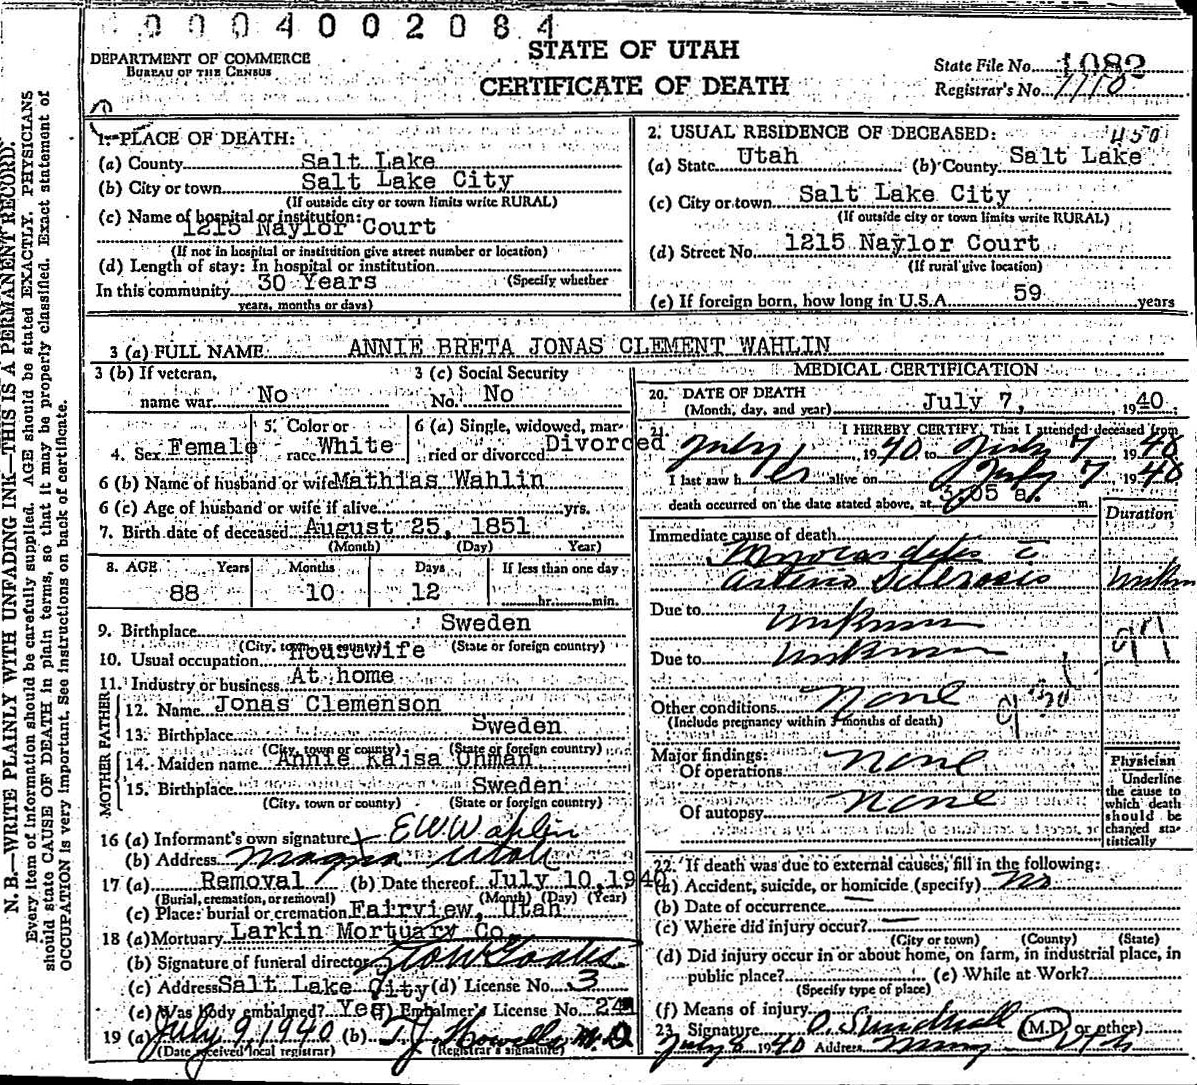 0004002084
DEPARTMENT OF COMMERCE
BUREAU OF THE CENSUS
STATE OF UTAH
CERTIFICATE OF DEATH
State File No. 1082
Registrar's No. 1110
N. B.—WRITE PLAINLY WITH UNFADING INK—THIS IS A PERMANENT RECORD.
Every item of information should be carefully supplied. AGE should be stated EXACTLY. PHYSICIANS
should state CAUSE OF DEATH in plain terms, so that it may be properly classified. Exact statement of
OCCUPATION is very important. See instructions on back of certificate.
1. PLACE OF DEATH:
(a) County Salt Lake
(b) City or town Salt Lake City
(If outside city or town limits write RURAL)
(c) Name of hospital or institution:
1215 Naylor Court
(If not in hospital or institution give street number or location)
(d) Length of stay: In hospital or institution
(Specify whether
In this community 30 Years
years, months or days)
2. USUAL RESIDENCE OF DECEASED: 450
(a) State Utah (b) County Salt Lake
(c) City or town Salt Lake City
(If outside city or town limits write RURAL)
(d) Street No. 1215 Naylor Court
(If rural give location)
(e) If foreign born, how long in U.S.A. 59 years
3 (a) FULL NAME ANNIE BRETA JONAS CLEMENT WAHLIN
3 (b) If veteran,
name war No
3 (c) Social Security
No. No
4. Sex Female
5. Color or
race White
6 (a) Single, widowed, mar-
ried or divorced Divorced
6 (b) Name of husband or wife Mathias Wahlin
6 (c) Age of husband or wife if alive yrs.
7. Birth date of deceased August 25, 1851
(Month) (Day) Year)
8. AGE Years Months Days If less than one day
88 10 12 hr. min.
9. Birthplace Sweden
(City, town or county) (State or foreign country)
10. Usual occupation Housewife
11. Industry or business At home
FATHER
12. Name Jonas Clemenson
13. Birthplace Sweden
(City, town or county) (State or foreign country)
MOTHER
14. Maiden name Annie Kajsa Uhman
15. Birthplace Sweden
(City, town or county) (State or foreign country)
16 (a) Informant's own signature X E W Wahlin
(b) Address Magna Utah
17 (a) Removal (b) Date thereof July 10, 1940
(Burial, cremation, or removal) (Month) (Day) (Year)
(c) Place: burial or cremation Fairview, Utah
18 (a) Mortuary Larkin Mortuary Co.
(b) Signature of funeral director
(c) Address Salt Lake City (d) License No. 3
(e) Was body embalmed? Yes (f) Embalmer's License No. 24
19 (a) July 9, 1940 (b) T J Howells M.D
(Date received local registrar) (Registrar's signature)
MEDICAL CERTIFICATION
20. DATE OF DEATH
(Month, day, and year) July 7, 1940
21. I HEREBY CERTIFY, That I attended deceased from
July 1, 1940 to July 7 1940
I last saw h er alive on July 7 1940
death occurred on the date stated above, at 3:05 a. m.
Duration
Immediate cause of death
Myocardites c
Arterio Sclerosis Unkn
Due to Unknown
97
Due to Unknown
Other conditions None
(Include pregnancy within 3 months of death)
Major findings:
Of operations None
Of autopsy None
Physician
Underline
the cause to
which death
should be
charged sta-
tistically
22. If death was due to external causes, fill in the following:
(a) Accident, suicide, or homicide (specify) No
(b) Date of occurrence —
(c) Where did injury occur? —
(City or town) (County) (State)
(d) Did injury occur in or about home, on farm, in industrial place, in
public place? (e) While at Work?
(Specify type of place)
(f) Means of injury
23. Signature O. Sundwall (M.D. or other)
July 8 1940 Address Murray Utah